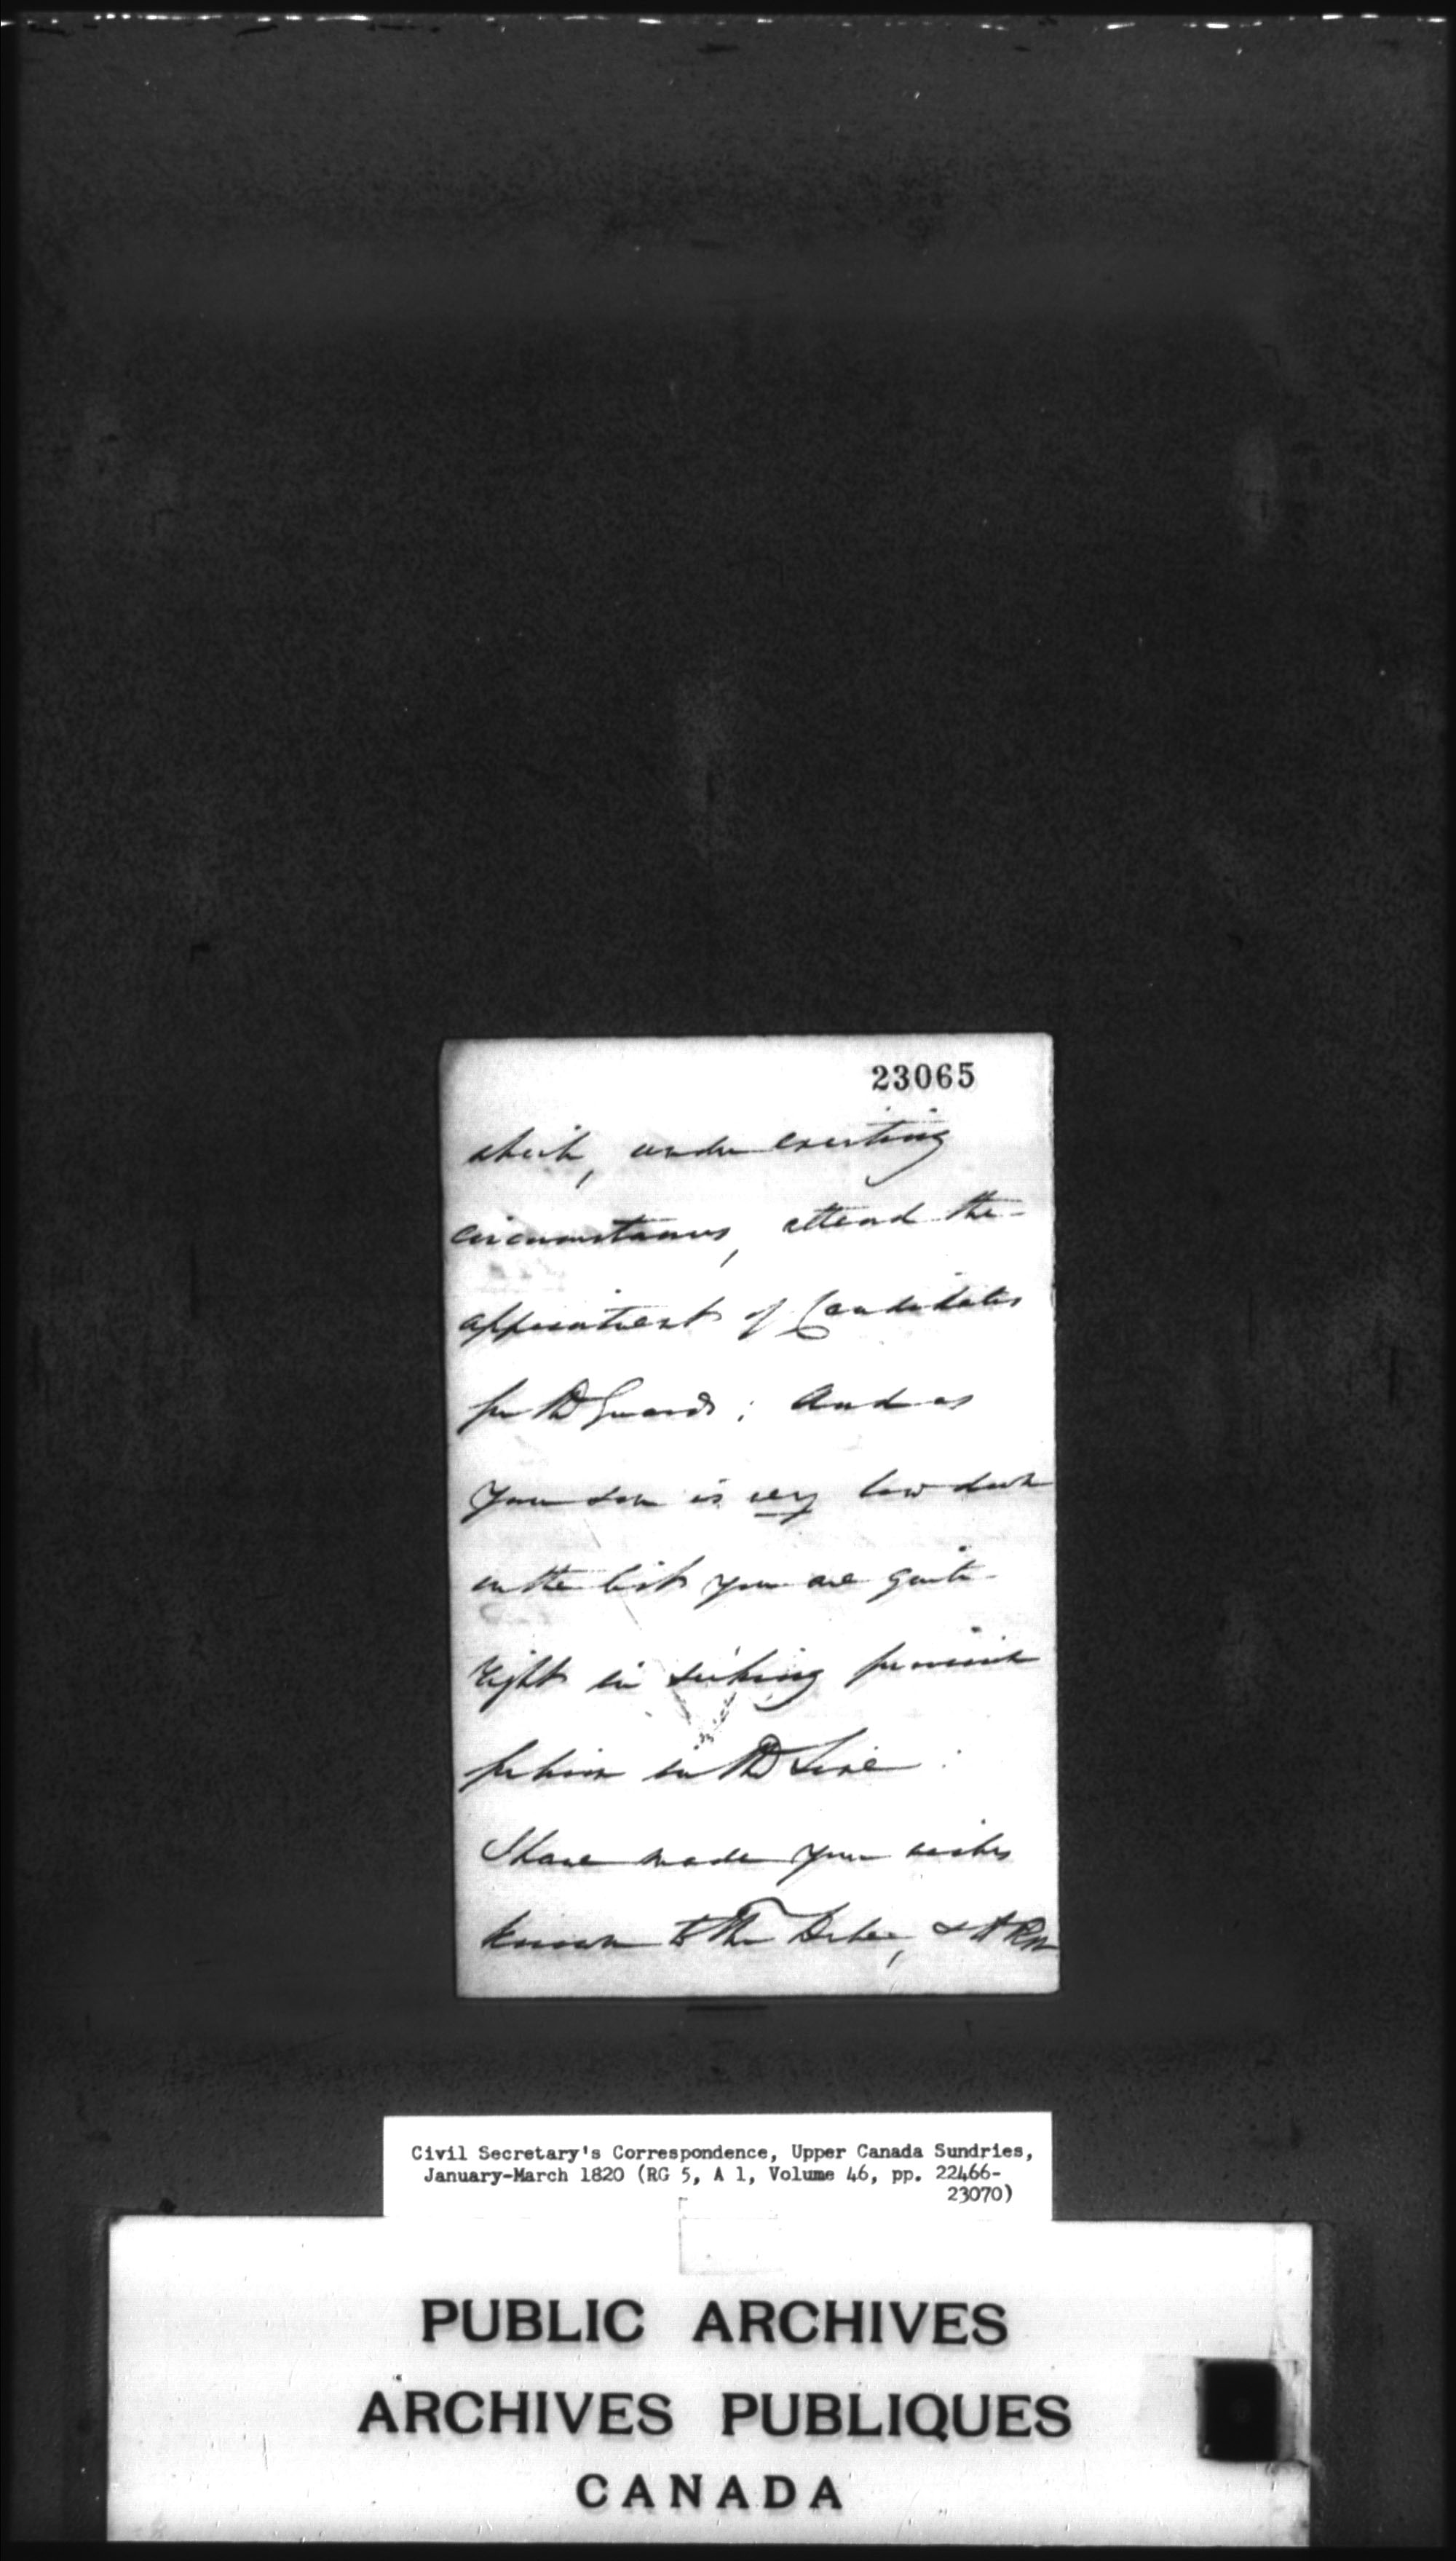 23065
which, under existing
circumstances, attend the
appointment of Candidates
for the Guards; And as
your son is very low down
on the list you are quite
right in seeking
for him in the Line
I have made your wishes
known to the Duke, & H R H
Civil Secretary's Correspondence, Upper Canada Sundries,
January-March 1820 (RG 5, A 1, Volume 46, pp. 22466-
23070)
PUBLIC ARCHIVES
ARCHIVES PUBLIQUES
CANADA